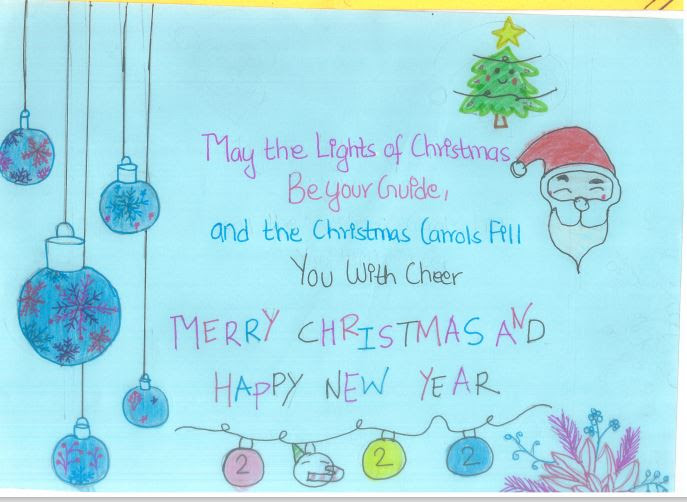 May the Lights of Christmas
Be your Guide,
and the Christmas Carrols Fill
You With Cheer
MERRY CHRISTMAS AND
HAPPY NEW YEAR
2 2 2